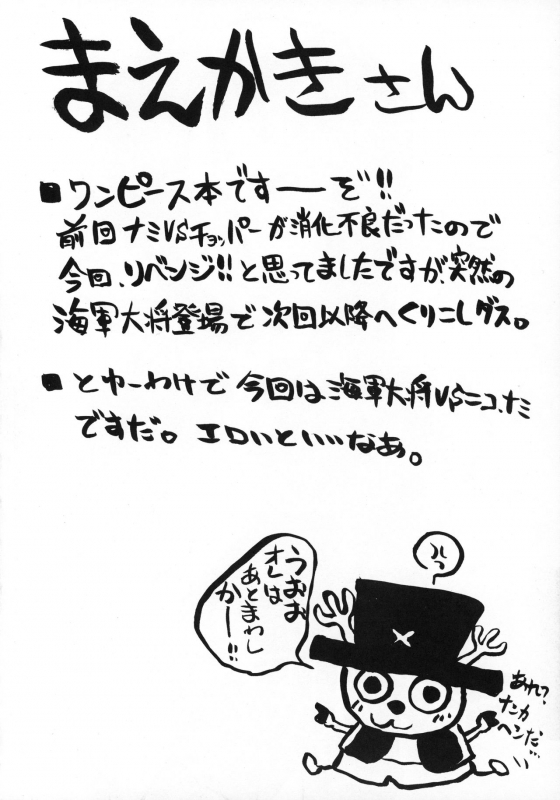 まえがきさん
■ワンピース本ですーーぞ!!
前回ナミVSチョッパーが消化不良だったので
今回、リベンジ!!と思ってましたですが、突然の
海軍大将登場で次回以降へくりこしダス。
■とゆーわけで今回は、海軍大将VSニコ、ナミ
ですだ。エロいといいなあ。
うおお
オレは
あとまわし
かー!!
あれ?
ナンカ
ヘンだ…